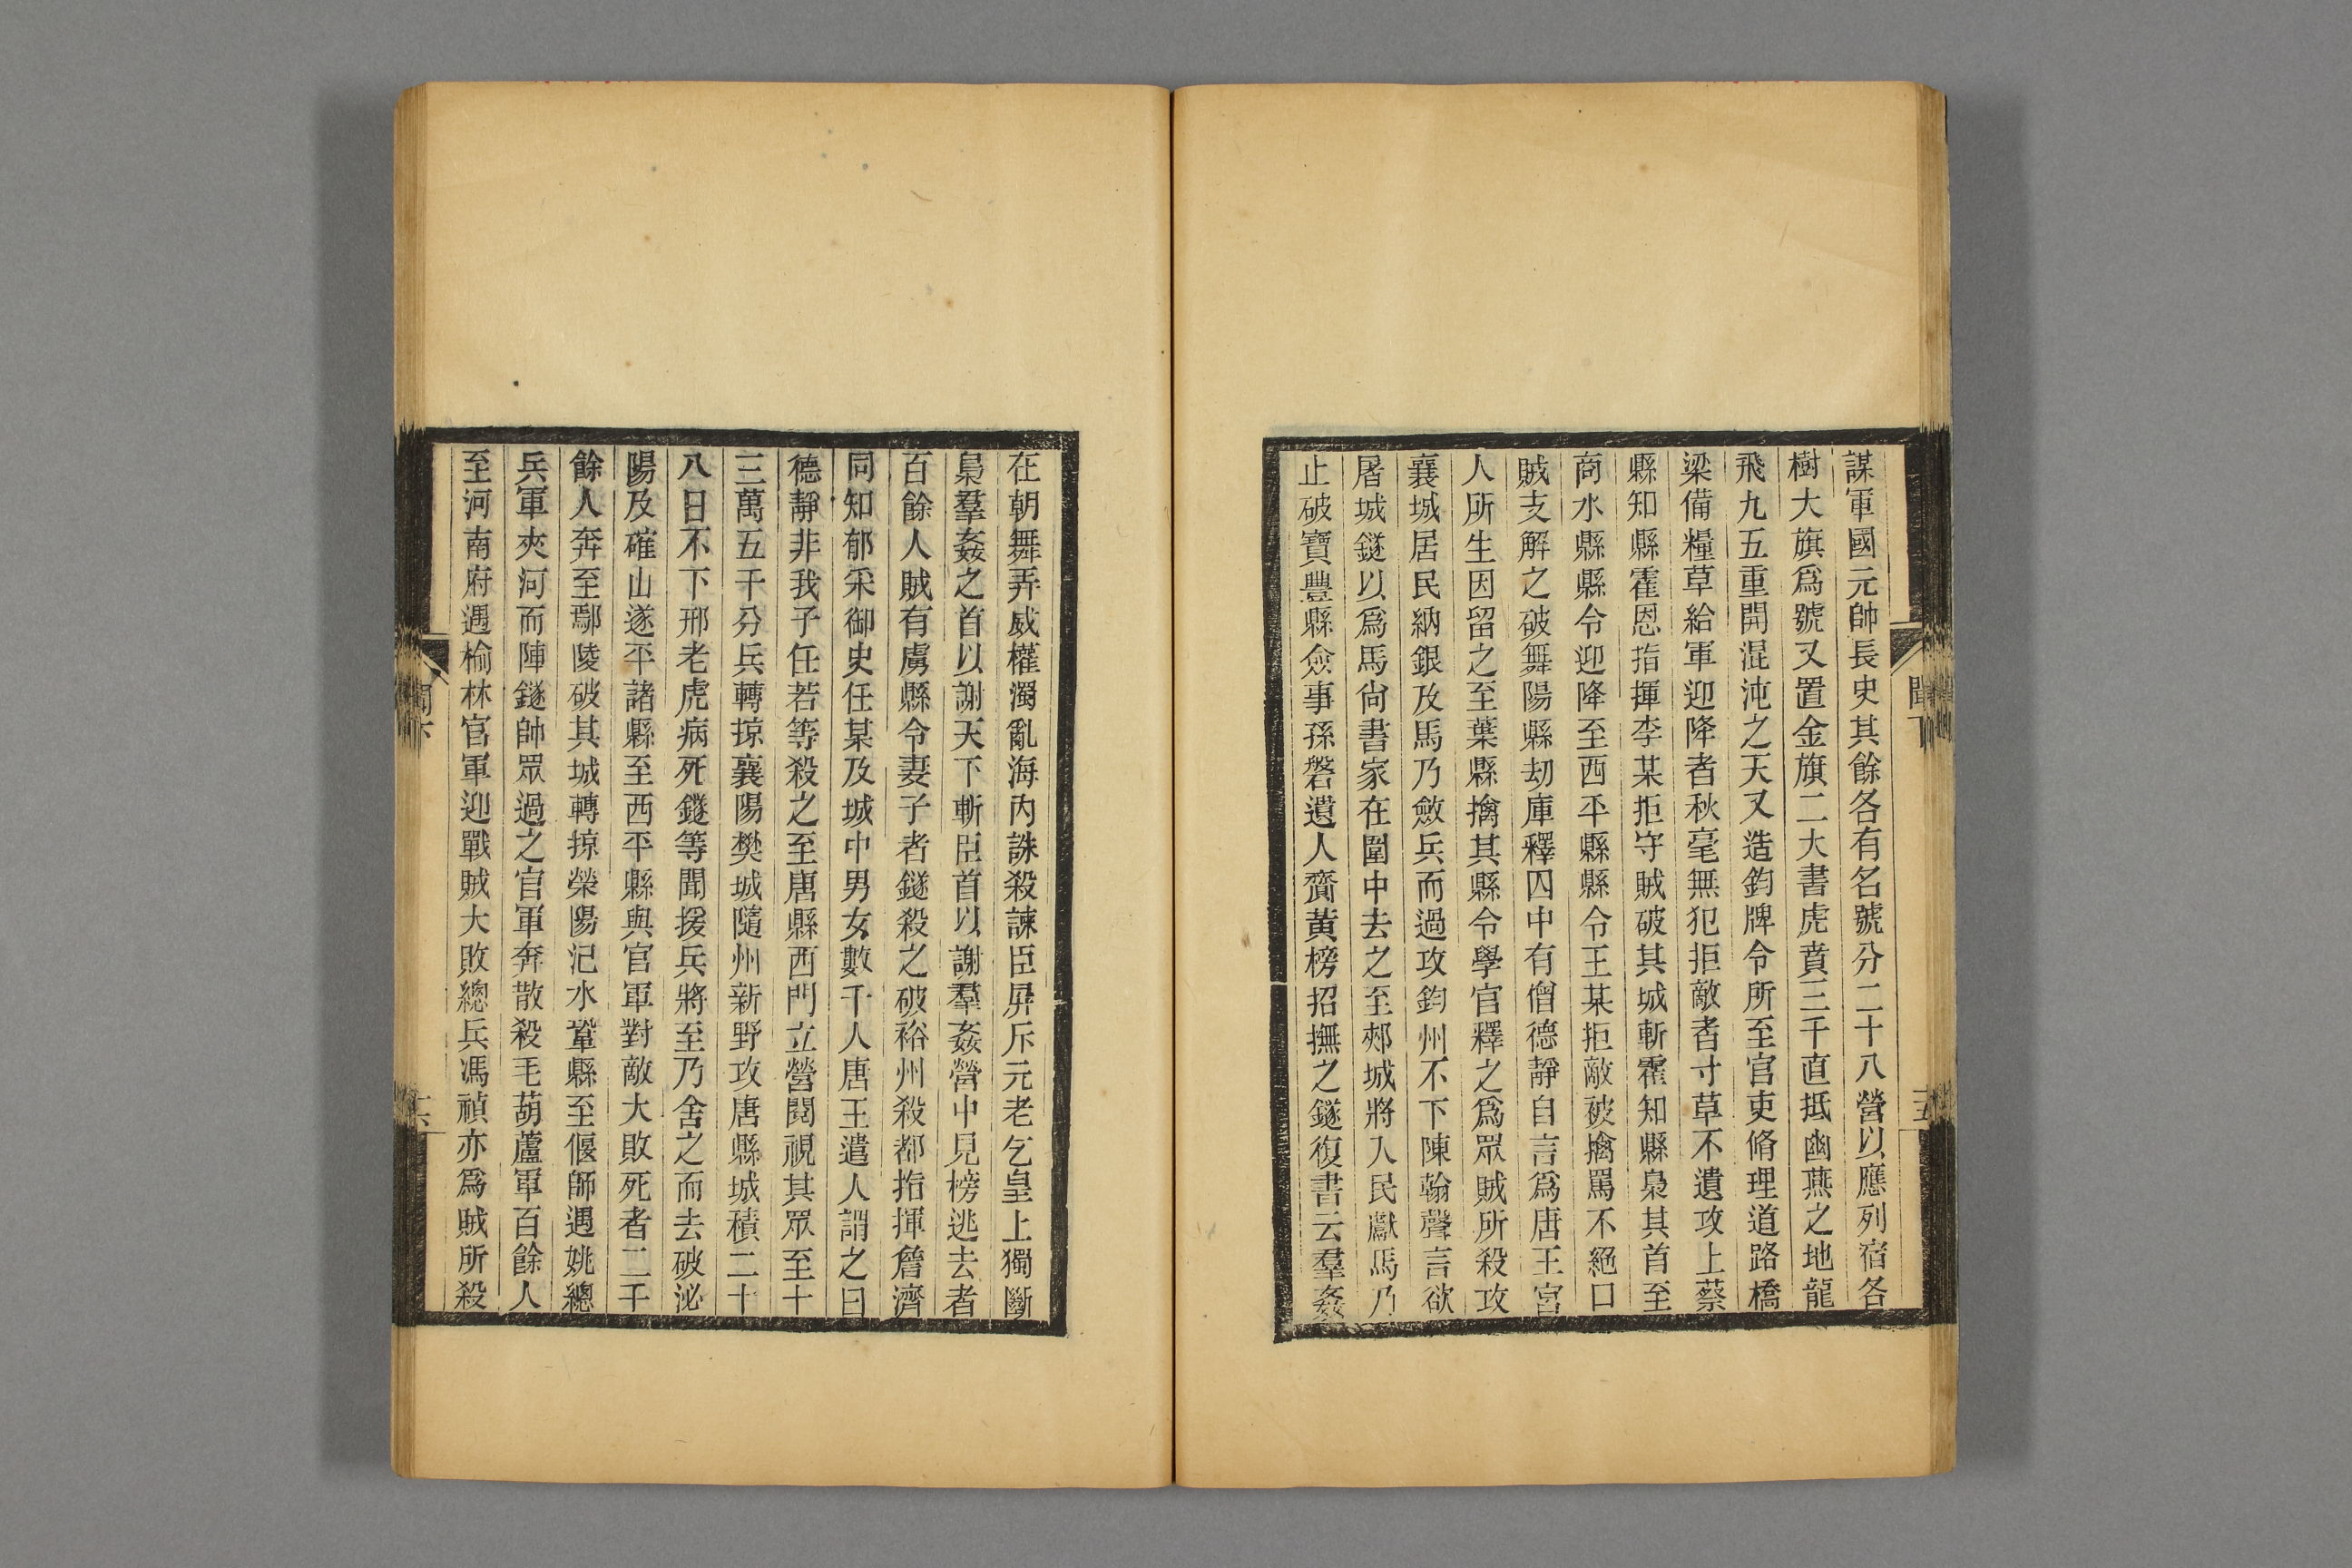 謀軍國元帥長史其餘各有名號分二十八營以應列宿各
樹大旗爲號又置金旗二大書虎賁三千直抵幽燕之地龍
飛九五重開混沌之天又造鈞牌令所至官吏脩理道路橋
梁備糧草給軍迎降者秋毫無犯拒敵者寸草不遺攻上蔡
縣知縣霍恩指揮李某拒守賊破其城斬霍知縣梟其首至
商水縣縣令迎降至西平縣縣令王某拒敵被擒罵不絕口
賊支解之破舞陽縣劫庫釋囚中有僧德靜自言爲唐王宮
人所生因留之至葉縣擒其縣令學官釋之爲眾賊所殺攻
襄城居民納銀及馬乃斂兵而過攻鈞州不下陳翰聲言欲
屠城鐩以爲馬尙書家在圍中去之至郟城將入民獻馬乃
止破寶豐縣僉事孫磐遺人齎黄榜招撫之鐩復書云羣姦
在朝舞弄威權濁亂海內誅殺諫臣屏斥元老乞皇上獨斷
梟羣姦之首以謝天下斬臣首以謝羣姦營中見榜逃去者
百餘人賊有虜縣令妻子者鐩殺之破裕州殺都指揮詹濟
同知郁采御史任某及城中男女數千人唐王遣人謂之曰
德靜非我子任若等殺之至唐縣西門立營閱視其眾至十
三萬五千分兵轉掠襄陽樊城隨州新野攻唐縣城積二十
八日不下邢老虎病死鐩等聞援兵將至乃舍之而去破泌
陽及確山遂平諸縣至西平縣與官軍對敵大敗死者二千
餘人奔至鄢陵破其城轉掠榮陽汜水鞏縣至偃師遇姚總
兵軍夾河而陣鐩帥眾過之官軍奔散殺毛葫蘆軍百餘人
至河南府遇榆林官軍迎戰賊大敗總兵馮禎亦爲賊所殺